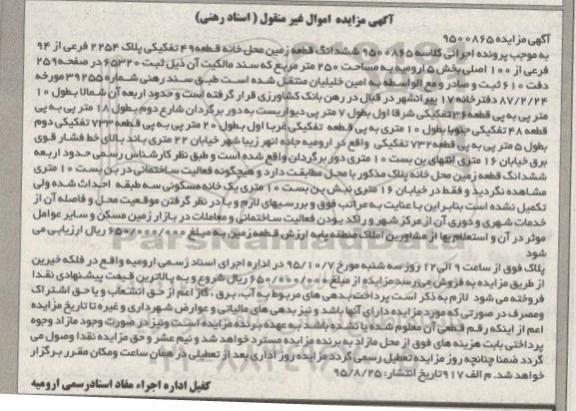 آگهی مزایده اموال غیر منقول ( اسناد رهنی )
آگهی مزایده ۹۵۰۰۸۶۵
به موجب پرونده اجرائی کلاسه ۹۵۰۰۸۶۵ ششدانگ قطعه زمین محل خانه قطعه ۴۹ تفکیکی پلاک ۲۲۵۴ فرعی از ۹۴
فرعی از ۱۰۰ اصلی بخش ۵ ارومیه به مساحت ۲۵۰ متر مربع که سند مالکیت آن ذیل ثبت ۶۵۳۲۰ در صفحه ۲۵۹
دفت ۶۱۰ ثبت و صادر و مع الواسطه به امین خلیلیان منتقل شده است طبق سند رهنی شماره ۳۹۲۵۵ مورخه
۸۷/۲/۲۴ دفترخانه ۱۷ پیرانشهر در قبال در رهن بانک کشاورزی قرار گرفته است و حدود اربعه آن شمالا بطول ۱۰
متر پی به پی قطعه ۳۶ تفکیکی شرقا اول بطول ۷ متر پی دیواریست به دور برگردان شارع دوم بطول ۱۸ متر پی به پی
قطعه ۴۸ تفکیکی جنوبا بطول ۱۰ متری به پی قطعه تفکیکی غربا اول بطول ۲۰ متر پی به پی قطعه ۷۳۳ تفکیکی دوم
بطول ۵ متر پی به پی قطعه ۷۳۲ تفکیکی واقع در ارومیه جاده انهر زیبا شهر خیابان ۲۲ متری باند بالای خط فشار قوی
برق خیابان ۱۶ متری انتهای بن بست ۱۰ متری دور برگردان واقع شده است و طبق نظر کارشناس رسمی حدود اربعه
ششدانگ قطعه زمین محل خانه پلاک مذکور با محل مطابقت دارد و هیچگونه فعالیت ساختمانی در بن بست ۱۰ متری
مشاهده نگردید و فقط در خیابان ۱۶ متری نبش بن بست ۱۰ متری یک خانه مسکونی سه طبقه احداث شده ولی
تکمیل نشده است بنابر این با عنایت به مراتب فوق و بررسیهای لازم و با در نظر گرفتن موقعیت محل و فاصله آن از
خدمات شهری و دوری آن از مرکز شهر و راکد بودن فعالیت ساختمانی و معاملات در بازار زمین مسکن و سایر عوامل
موثر در آن و استعلام بها از مشاورین املاک منطقه پایه ارزش قطعه زمین به مبلغ ۶۵۰/۰۰۰/۰۰۰ ریال ارزیابی می
شود
پلاک فوق از ساعت ۹ الی ۱۲ روز سه شنبه مورخ ۹۵/۱۰/۷ در اداره اجرای اسناد رسمی ارومیه واقع در فلکه خیرین
از طریق مزایده به فروش می رسد مزایده از مبلغ ۶۵۰/۰۰۰/۰۰۰ ریال شروع و به بالاترین قیمت پیشنهادی نقدا
فروخته می شود لازم به ذکر است پرداخت بدهی های مربوط به آب، برق، گاز اعم از حق انشعاب و یا حق اشتراک
و مصرف در صورتی که مورد مزایده دارای آنها باشد و نیز بدهی های مالیاتی و عوارض شهرداری و غیره تا تاریخ مزایده
اعم از اینکه رقم قطعی آن معلوم شده یا نشده باشد به عهده برنده مزایده است و نیز در صورت وجود مازاد وجوه
پرداختی بابت هزینه های فوق از محل مازاد به برنده مزایده مسترد خواهد شد و نیم عشر و حق مزایده نقدا وصول می
گردد ضمنا چنانچه روز مزایده تعطیل رسمی گردد مزایده روز اداری بعد از تعطیلی در همان ساعت و مکان مقرر برگزار
خواهد شد. م الف ۹۱۷ تاریخ انتشار: ۹۵/۸/۲۵
کفیل اداره اجراء مفاد اسناد رسمی ارومیه